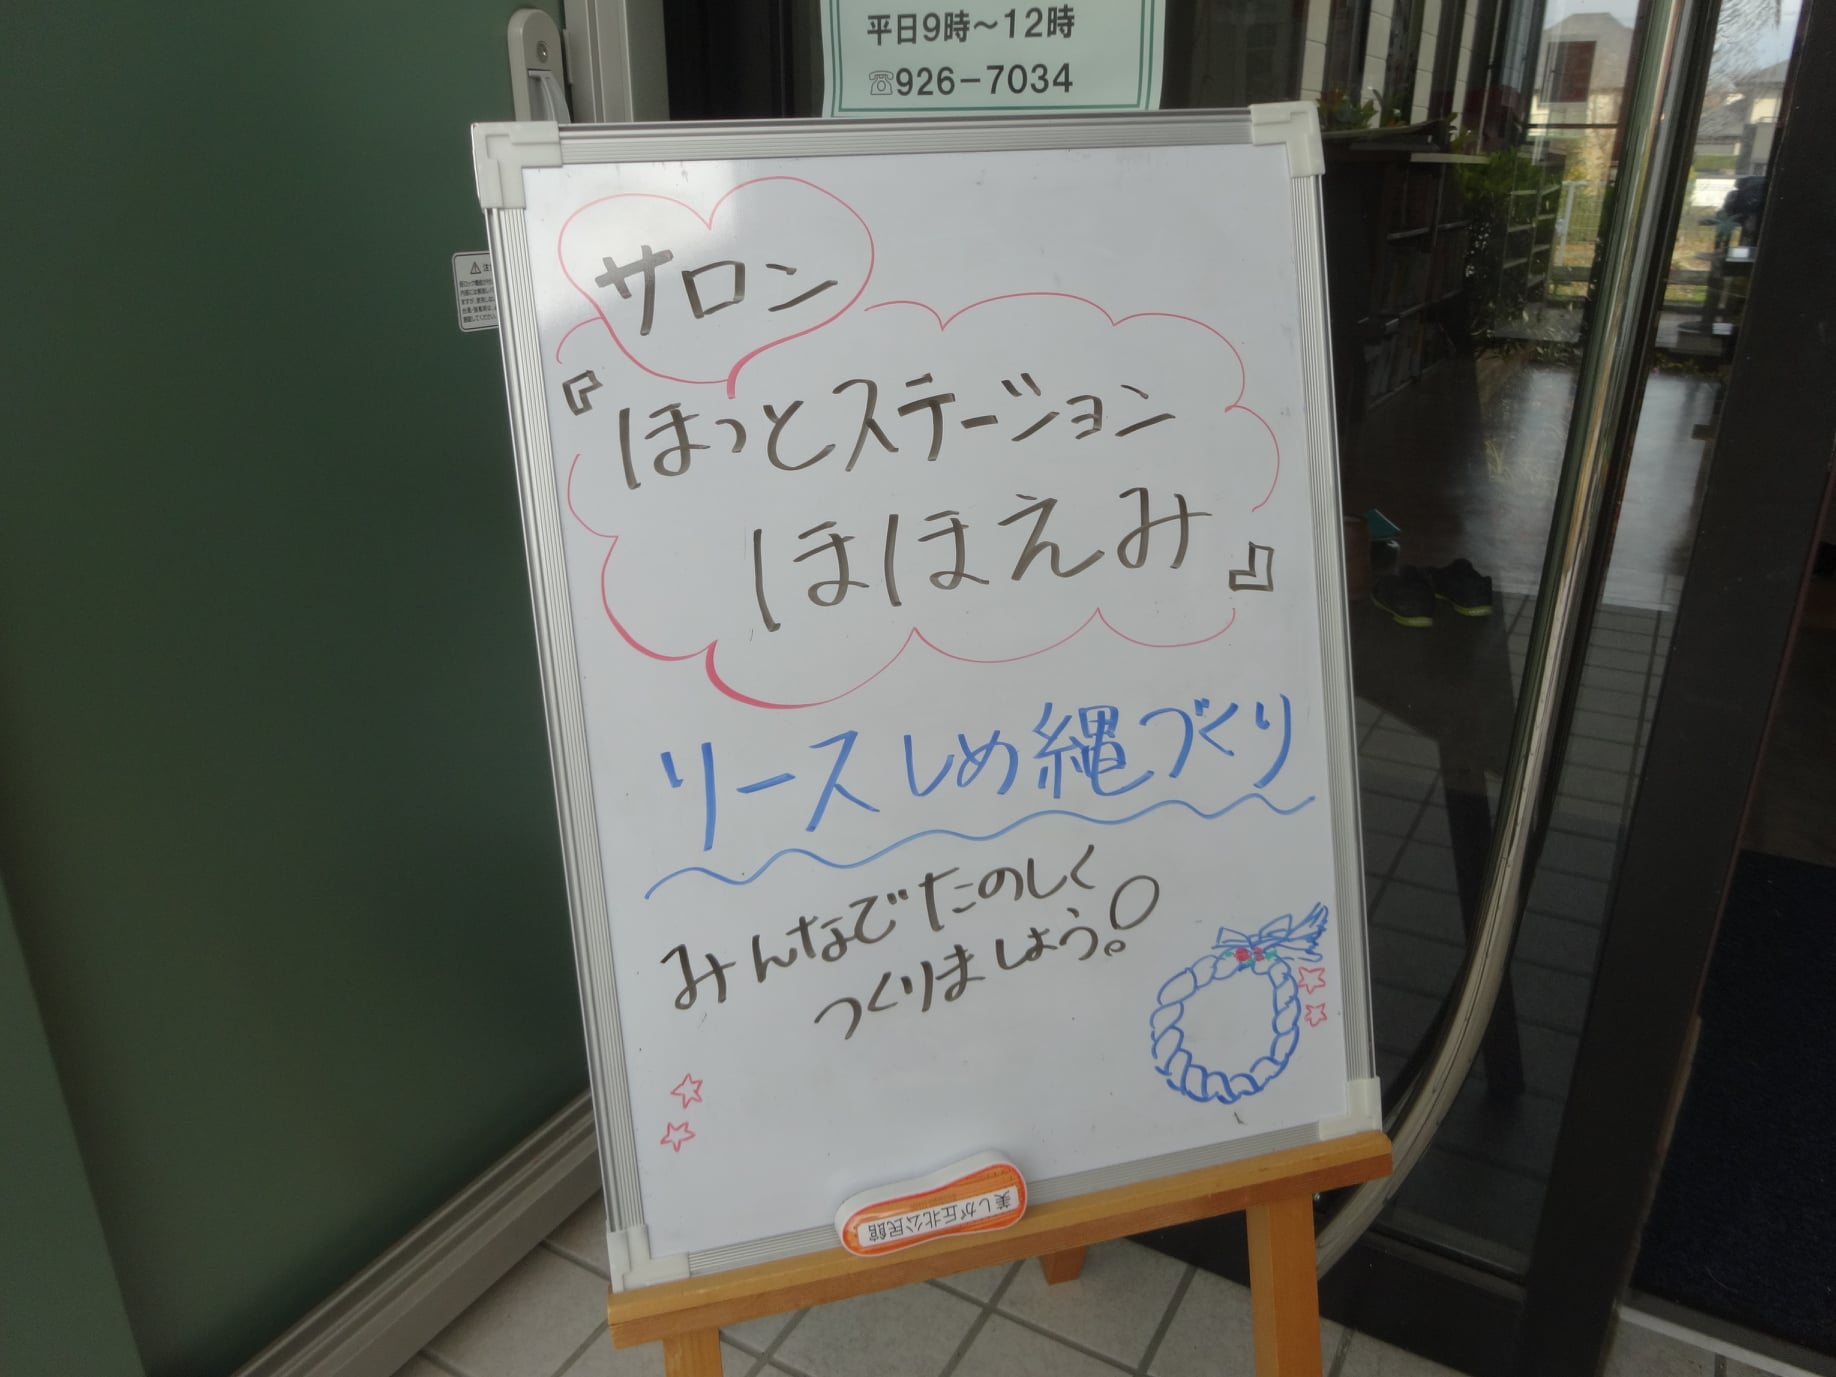 平日9時～12時
☎926-7034
サロン
『ほっとステーション
ほほえみ』
リースしめ縄づくり
みんなでたのしく
つくりましょう!
美しが丘北公民館